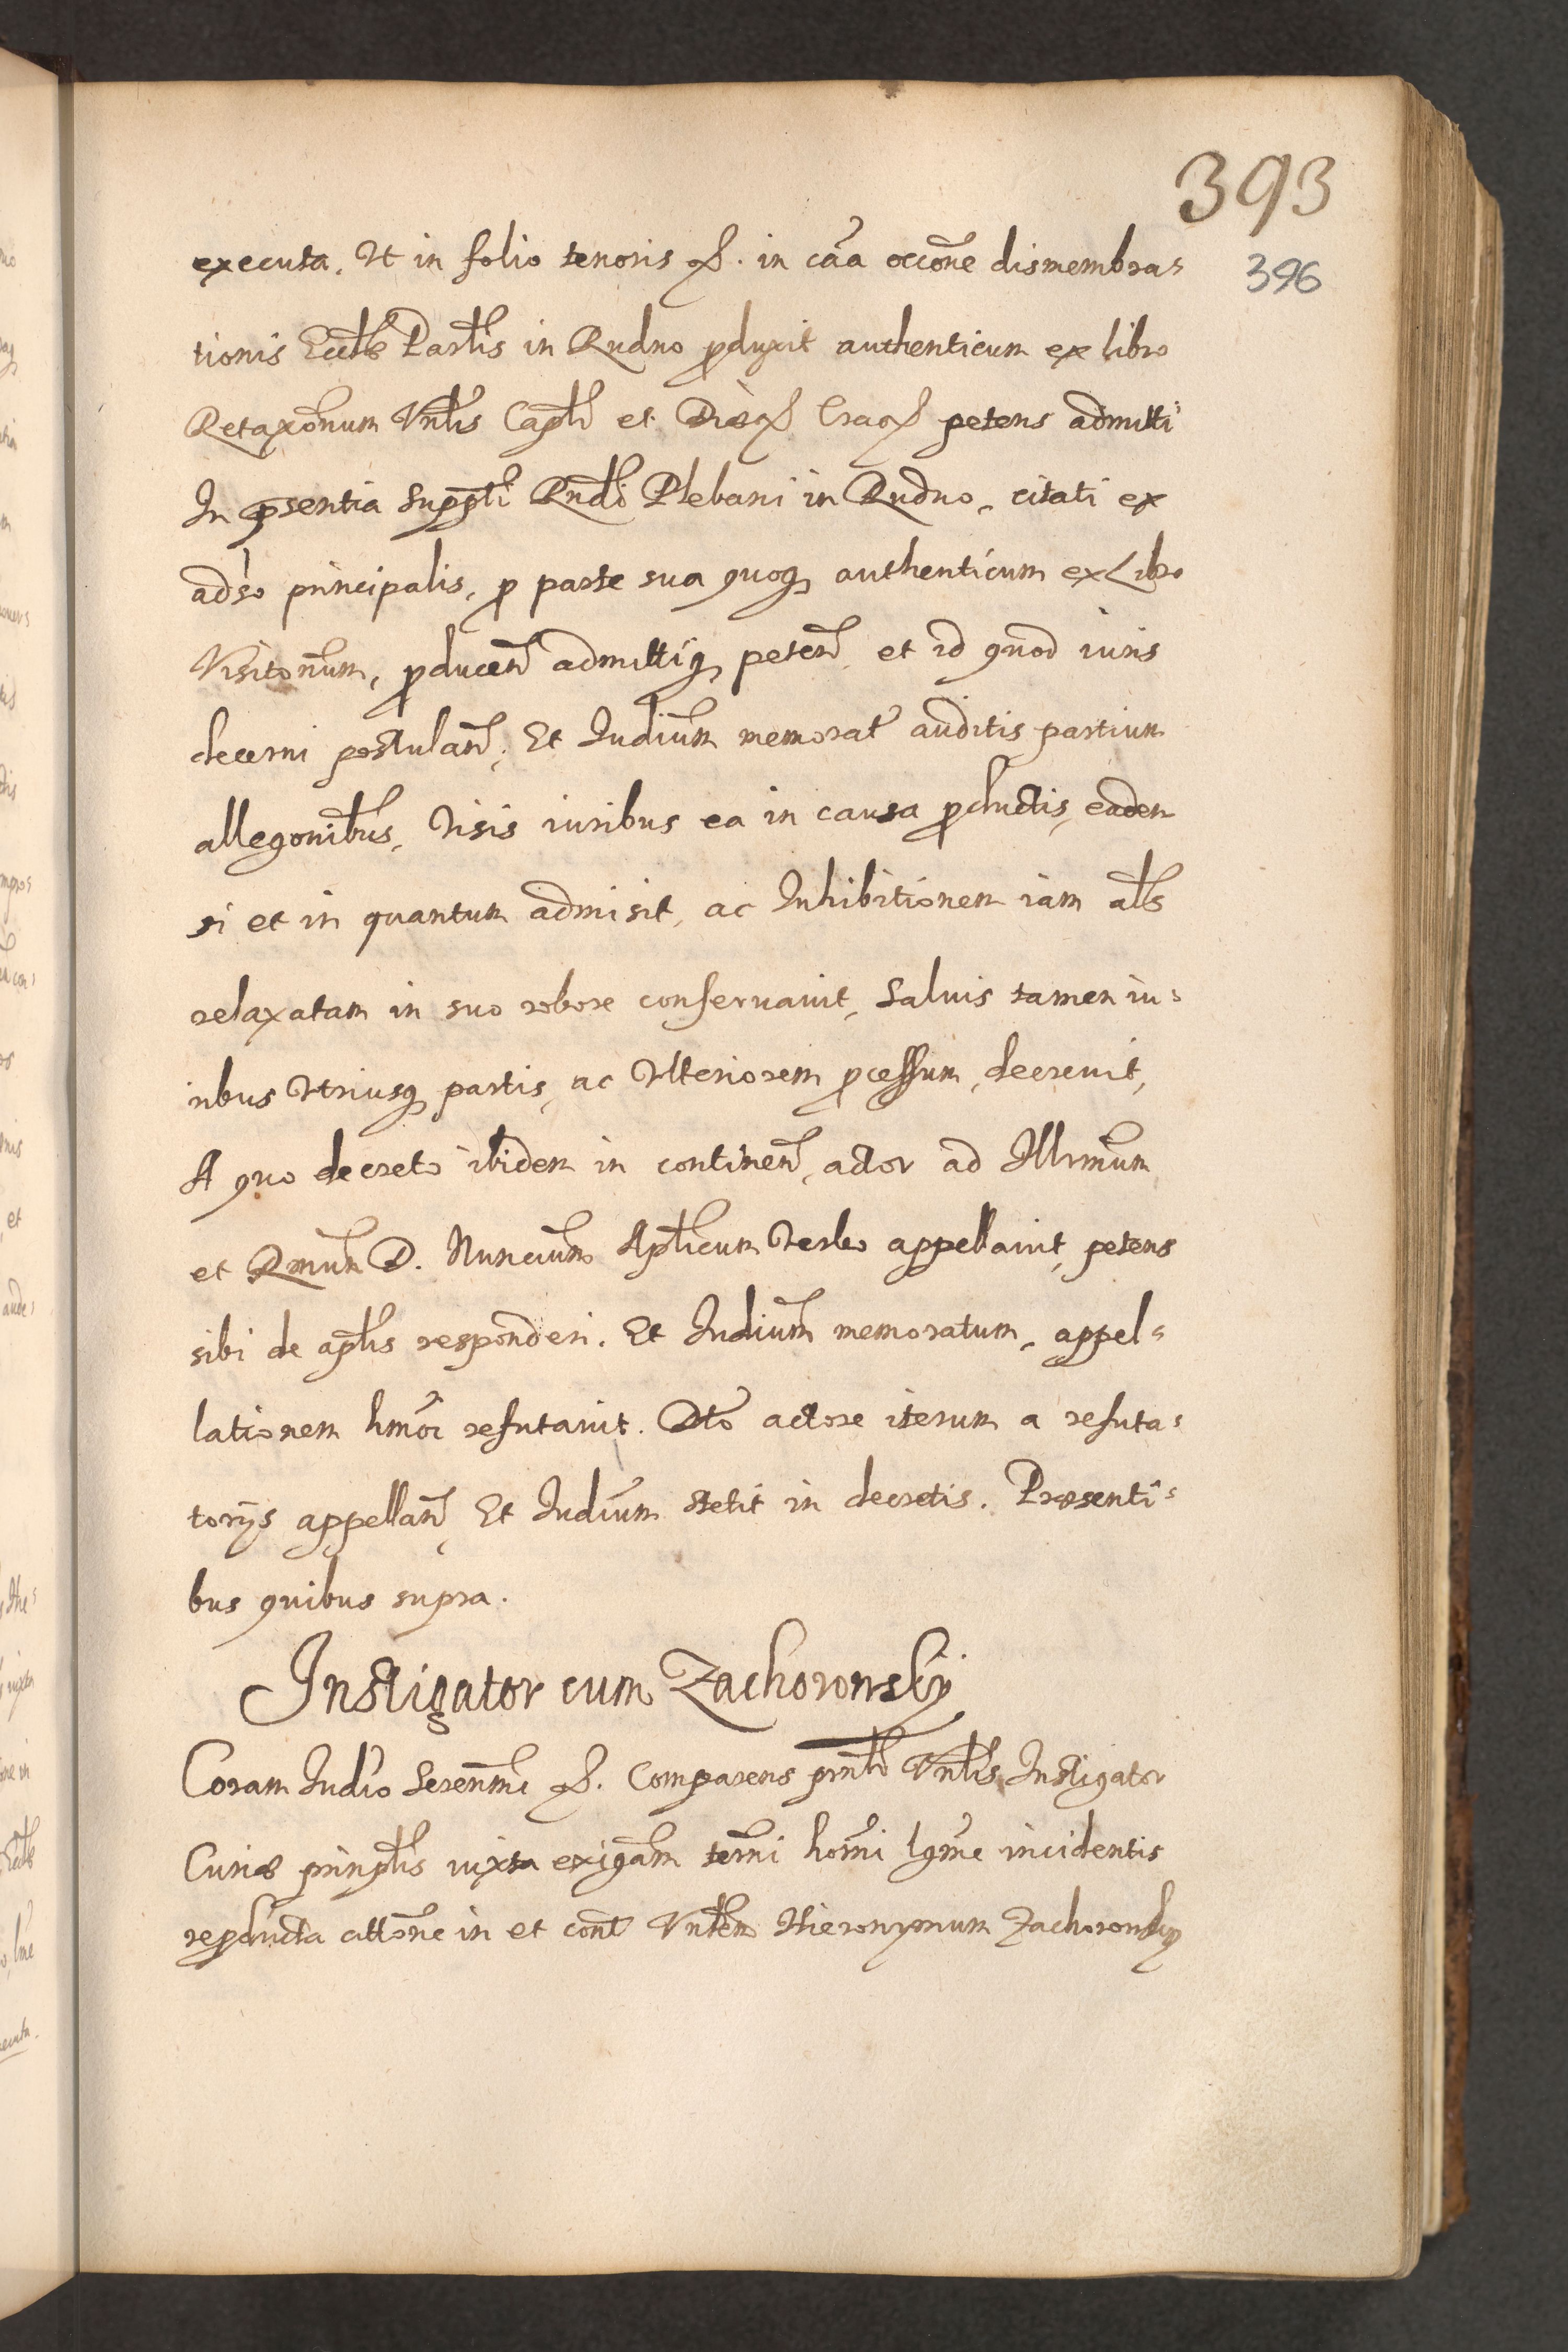 393
396
executa. Ut in folio tenoris &. in cãa occõne dismembra=
tionis Ecclæ Parlis in Rudno pduxit authenticum ex libro
Retaxonum Vnlis Capli et petens admitti
In psentia Suppti Rndi Plebani in Rudno, citati ex
adso principalis, p parte sua quoq authenticum ex Libro
Visitonum, pducen admittiq peten et id quod iuris
decerni postulan. Et Iudium memorat auditis partium
allegonibus, Visis iuribus ea in causa pductis, eadem
si et in quantum admisit, ac Inhibitionem iam als
relaxatam in suo robore conservauit, Saluis tamen iu=
ribus Vtriusq partis, ac Vlteriorem pcessum, decreuit,
A quo decreto ibidem in continen, actor ad Illrmum
et Rmum D. Nuncium Aplicum Verbo appellauit, petens
sibi de aplis responderi. Et Iudium memoratum, appel=
lationem hmoi refutauit. Dto actore iterum a refuta=
torÿs appellan Et Iudium stetit in decretis. Præsenti=
bus quibus supra.
Instigator cum Zachoronsky
Coram Iudio Serenmi &. Comparens prnli Vnlis Instigator
Curiæ prinplis iuxta exigam termi horni lgme incidentis
reproducta attone in et cont Vnlem Hieronymum Zachoronsky